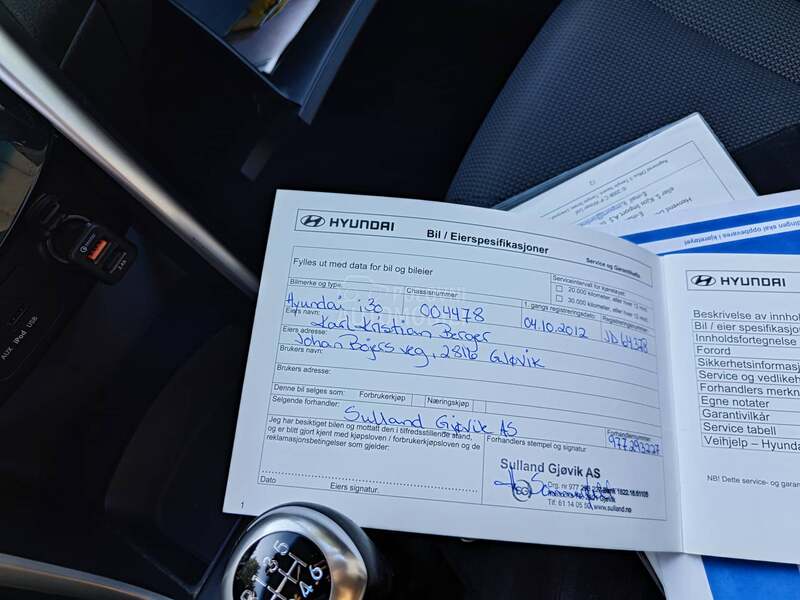 HYUNDAI
Bil / Eierspesifikasjoner
Service og Garantihefte
Fylles ut med data for bil og bileier
Serviceintervall for kjøretøyet:
20.000 kilometer, eller hver 12 mnd.
30.000 kilometer, eller hver 12 mnd.
Bilmerke og type: Chassisnummer: 1. gangs registreringsdato: Registreringsnummer:
Hyundai i30 004478 04.10.2012 JD64328
Eiers navn:
Karl-Kristian Berger
Eiers adresse:
Johan Bojers veg, 2816 Gjøvik
Brukers navn:
Brukers adresse:
Denne bil selges som: Forbrukerkjøp Næringskjøp
Selgende forhandler: Forhandlernummer:
Sulland Gjøvik AS 977293227
Jeg har besiktiget bilen og mottatt den i tilfredsstillende stand,
og er blitt gjort kjent med kjøpsloven / forbrukerkjøpsloven og de
reklamasjonsbetingelser som gjelder:
Forhandlers stempel og signatur:
Sulland Gjøvik AS
Org. nr 977
Tlf: 61 14 05 50 www.sulland.no
Dato Eiers signatur.
1
HYUNDAI
Beskrivelse av innho
Bil / eier spesifikasjon
Innholdsfortegnelse
Forord
Sikkerhetsinformasj
Service og vedlikeh
Forhandlers merkn
Egne notater
Garantivilkår
Service tabell
Veihjelp – Hyunda
NB! Dette service- og garant
AUX iPod USB
2.4A
R 1 3 5
2 4 6